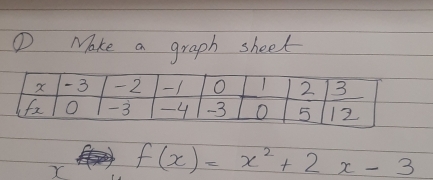 ① Make a graph sheet
x -3 -2 -1 0 1 2 3
fx 0 -3 -4 -3 0 5 12
f(x) = x² + 2x - 3
x